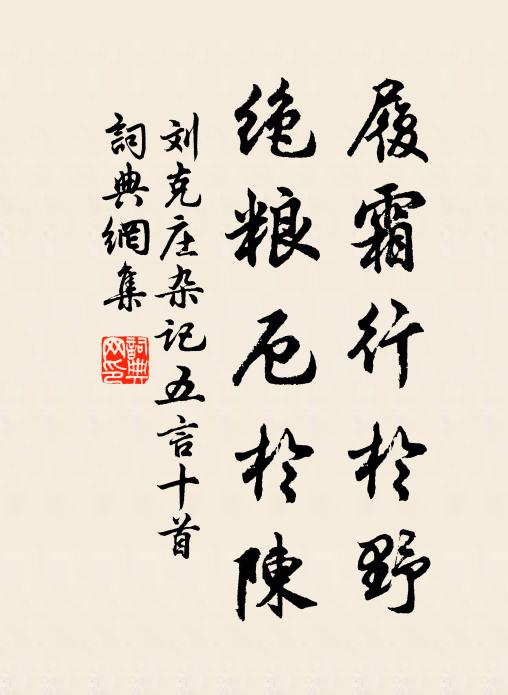 履霜行於野
绝粮厄於陳
刘克庄杂记五言十首
詞典網集
詞典网印